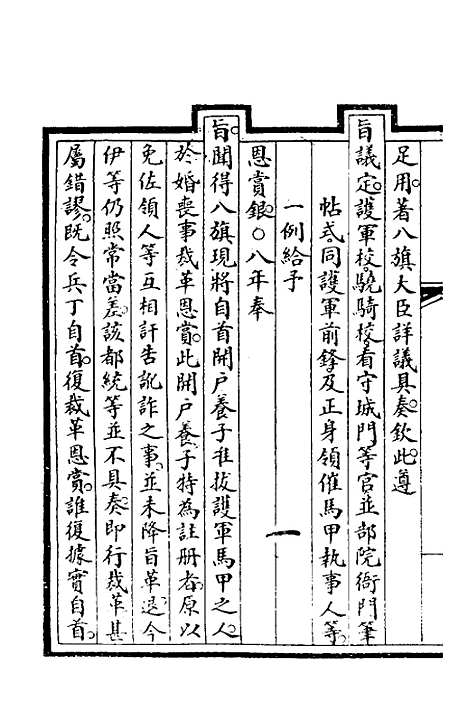 足用。著八旗大臣詳議具。奏欽此。遵
旨議定。護軍校。驍騎校。看守城門等官並部院衙門筆
帖式。同護軍前鋒及正身領催馬甲執事人等。
一例給予
恩賞銀。〇八年奉
旨。聞得八旗現將自首開户養子。准拔護軍馬甲之人。
於婚喪事裁革恩賞。此開户養子特為註册者。原以
免佐領人等互相訐告訛詐之事。並未降旨革退。今
伊等仍照常當差。該都統等並不具奏。即行裁革。甚
屬錯謬。既令兵丁自首。復裁革恩賞。誰復據實自首。